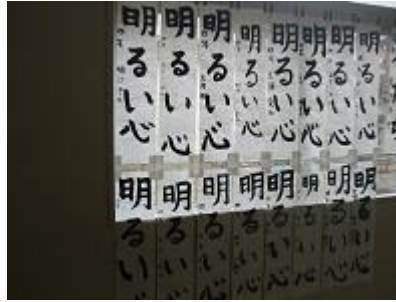 明るい心
明るい心
明るい心
明るい心
明るい心
明るい心
明るい心
明るい心
明るい心
明るい心
明るい心
明るい心
明るい心
明るい心
明るい心
明るい心